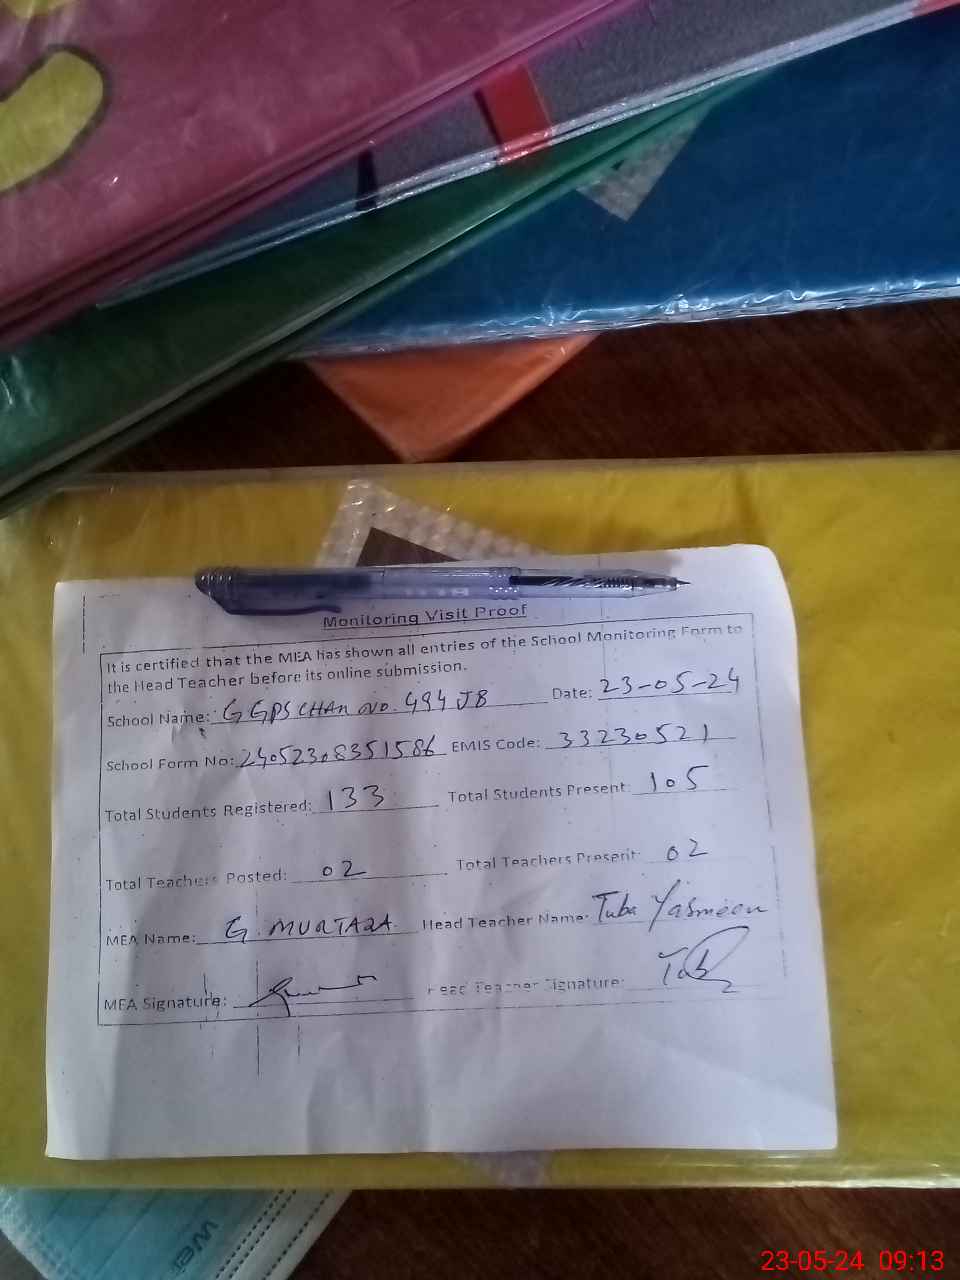 Monitoring Visit Proof
It is certified that the MEA has shown all entries of the School Monitoring Form to
the Head Teacher before its online submission.
School Name: GGPS CHAK NO. 494 JB Date: 23-05-24
School Form No: 24052308351586 EMIS Code: 33230521
Total Students Registered: 133 Total Students Present: 105
Total Teachers Posted: 02 Total Teachers Present: 02
MEA Name: G. MURTAZA Head Teacher Name: Tuba Yasmeen
MEA Signature: Head Teacher Signature:
23-05-24 09:13